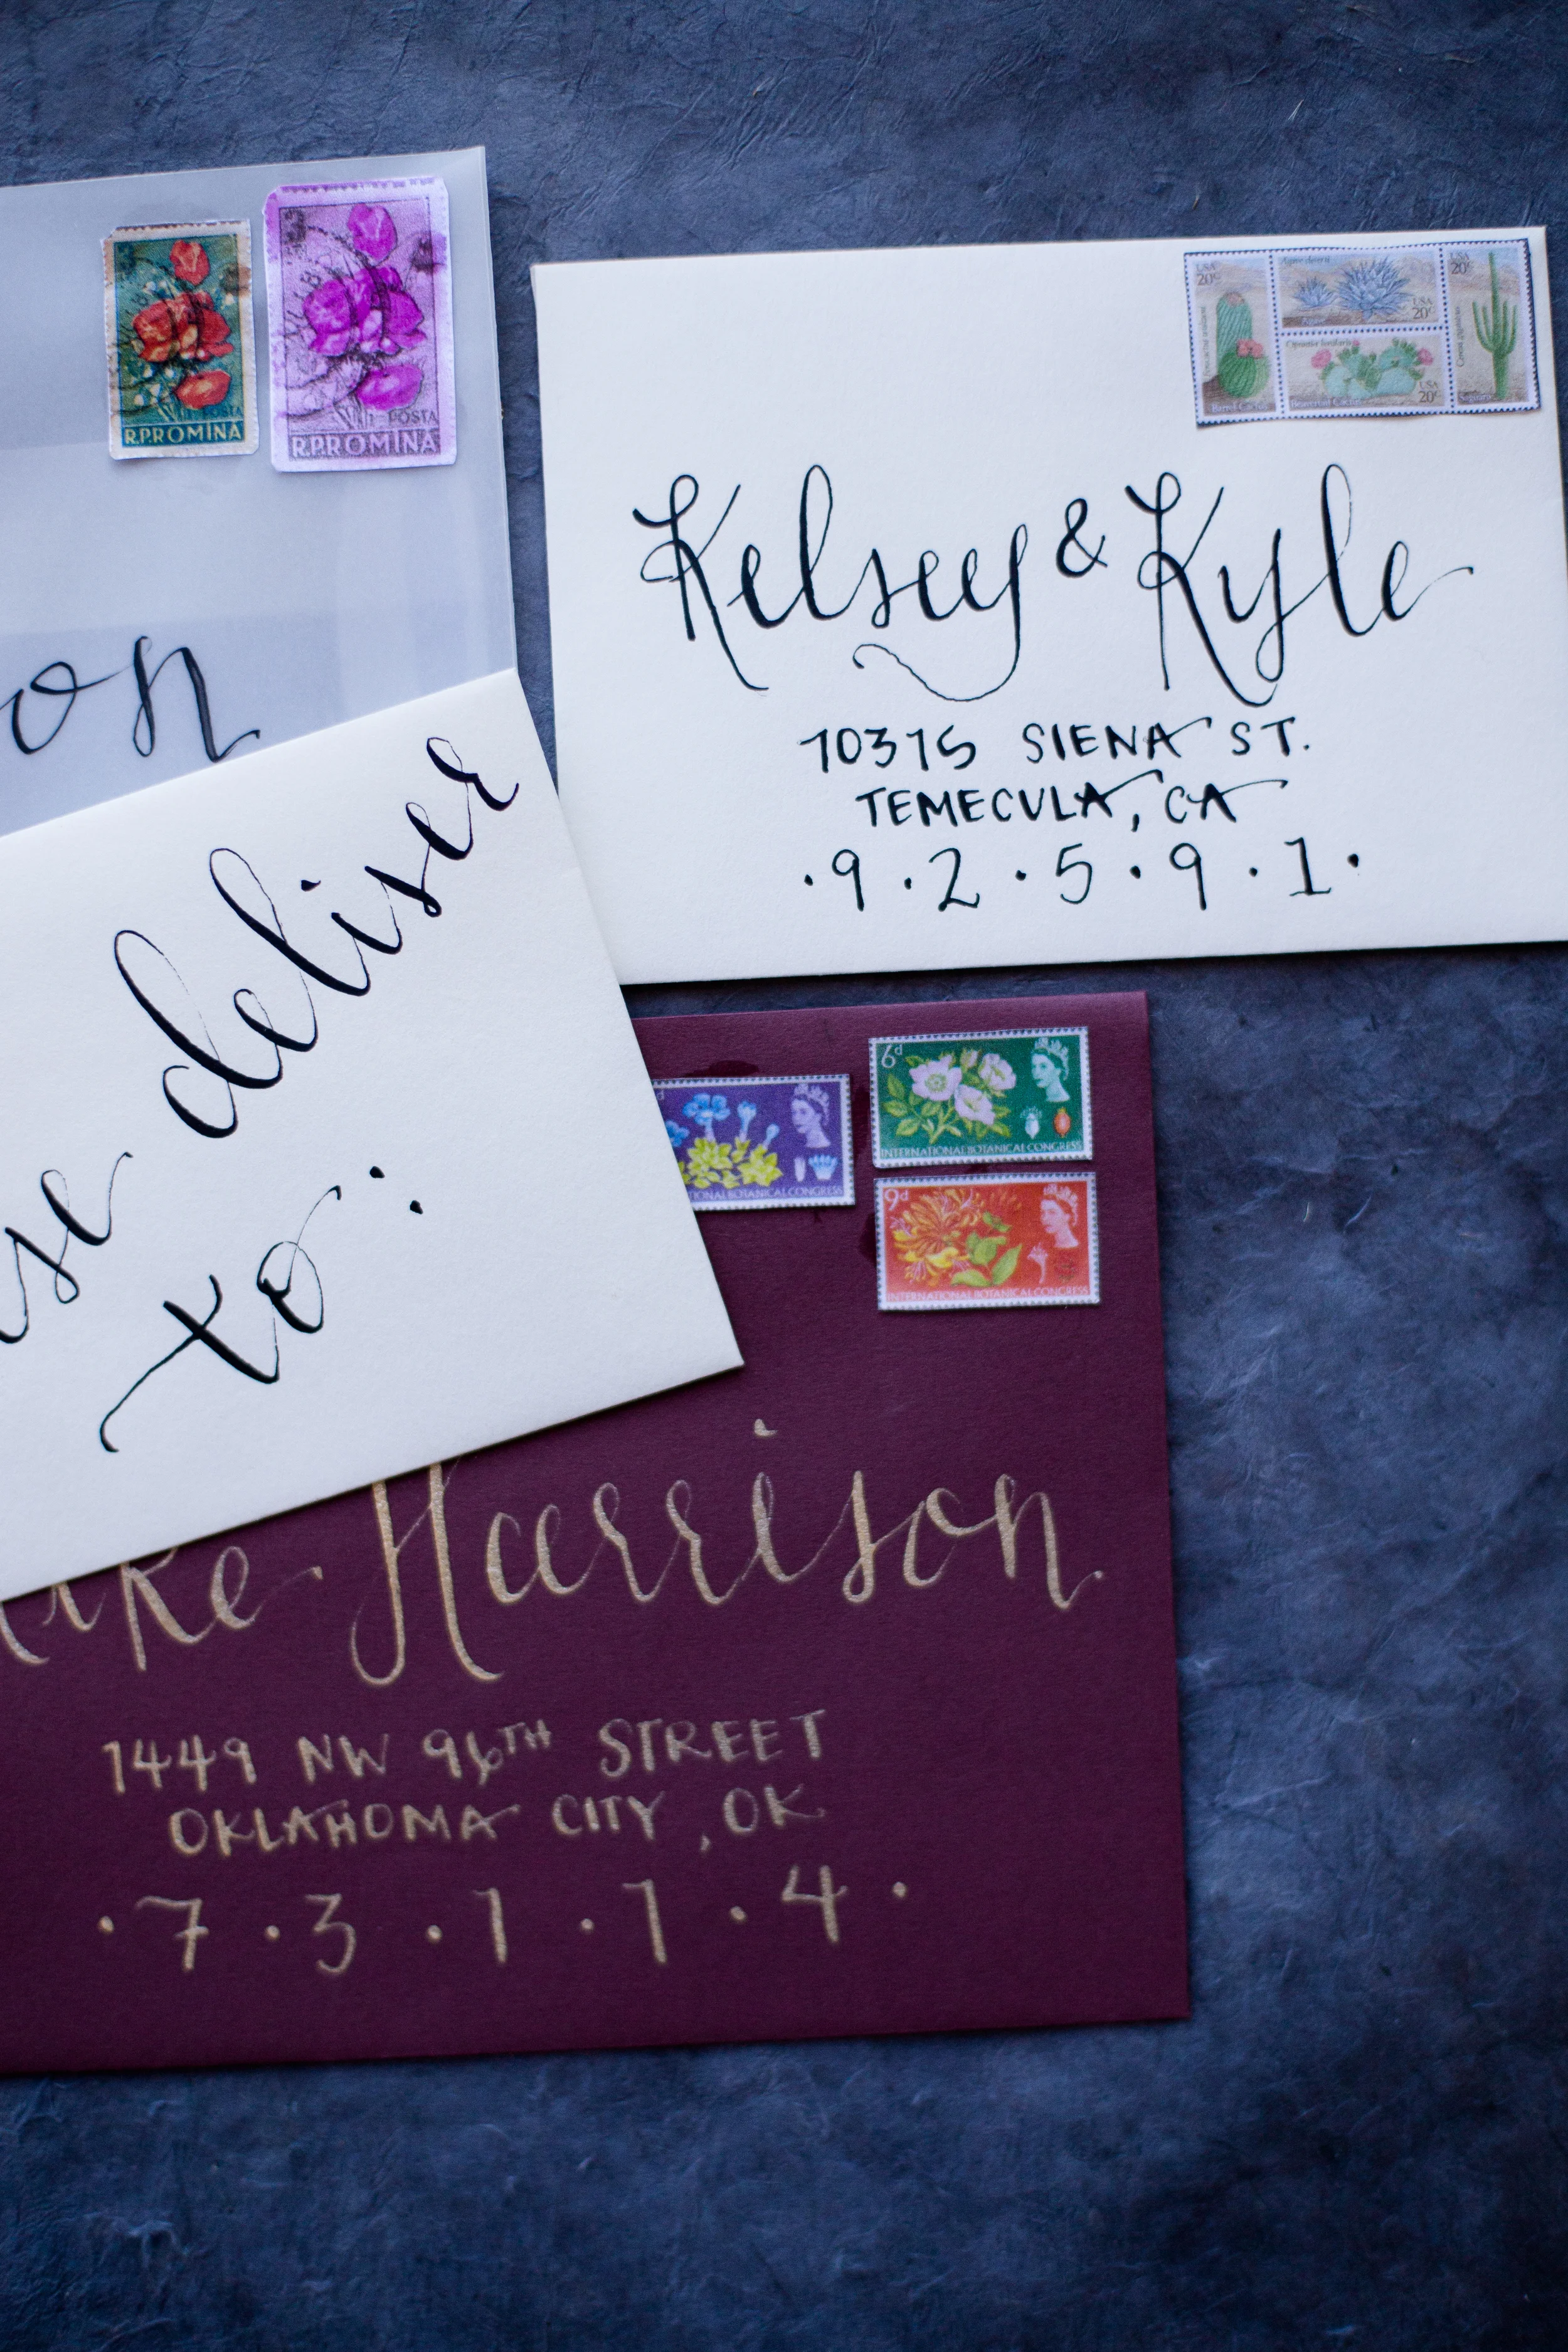 POSTA
R.P.ROMINA
POSTA
R.P.ROMINA
on
USA
20c
Barrel Cactus
Agave deserti
USA
20c
Opuntia basilaris
Beavertail Cactus
USA
20c
USA
20c
Saguaro
Kelsey & Kyle
10315 SIENA ST.
TEMECULA, CA
·9·2·5·9·1·
se deliver
to:
IONAL BOTANICAL CONGRESS
6d
INTERNATIONAL BOTANICAL CONGRESS
9d
INTERNATIONAL BOTANICAL CONGRESS
ike Harrison
1449 NW 96TH STREET
OKLAHOMA CITY, OK
·7·3·1·1·4·